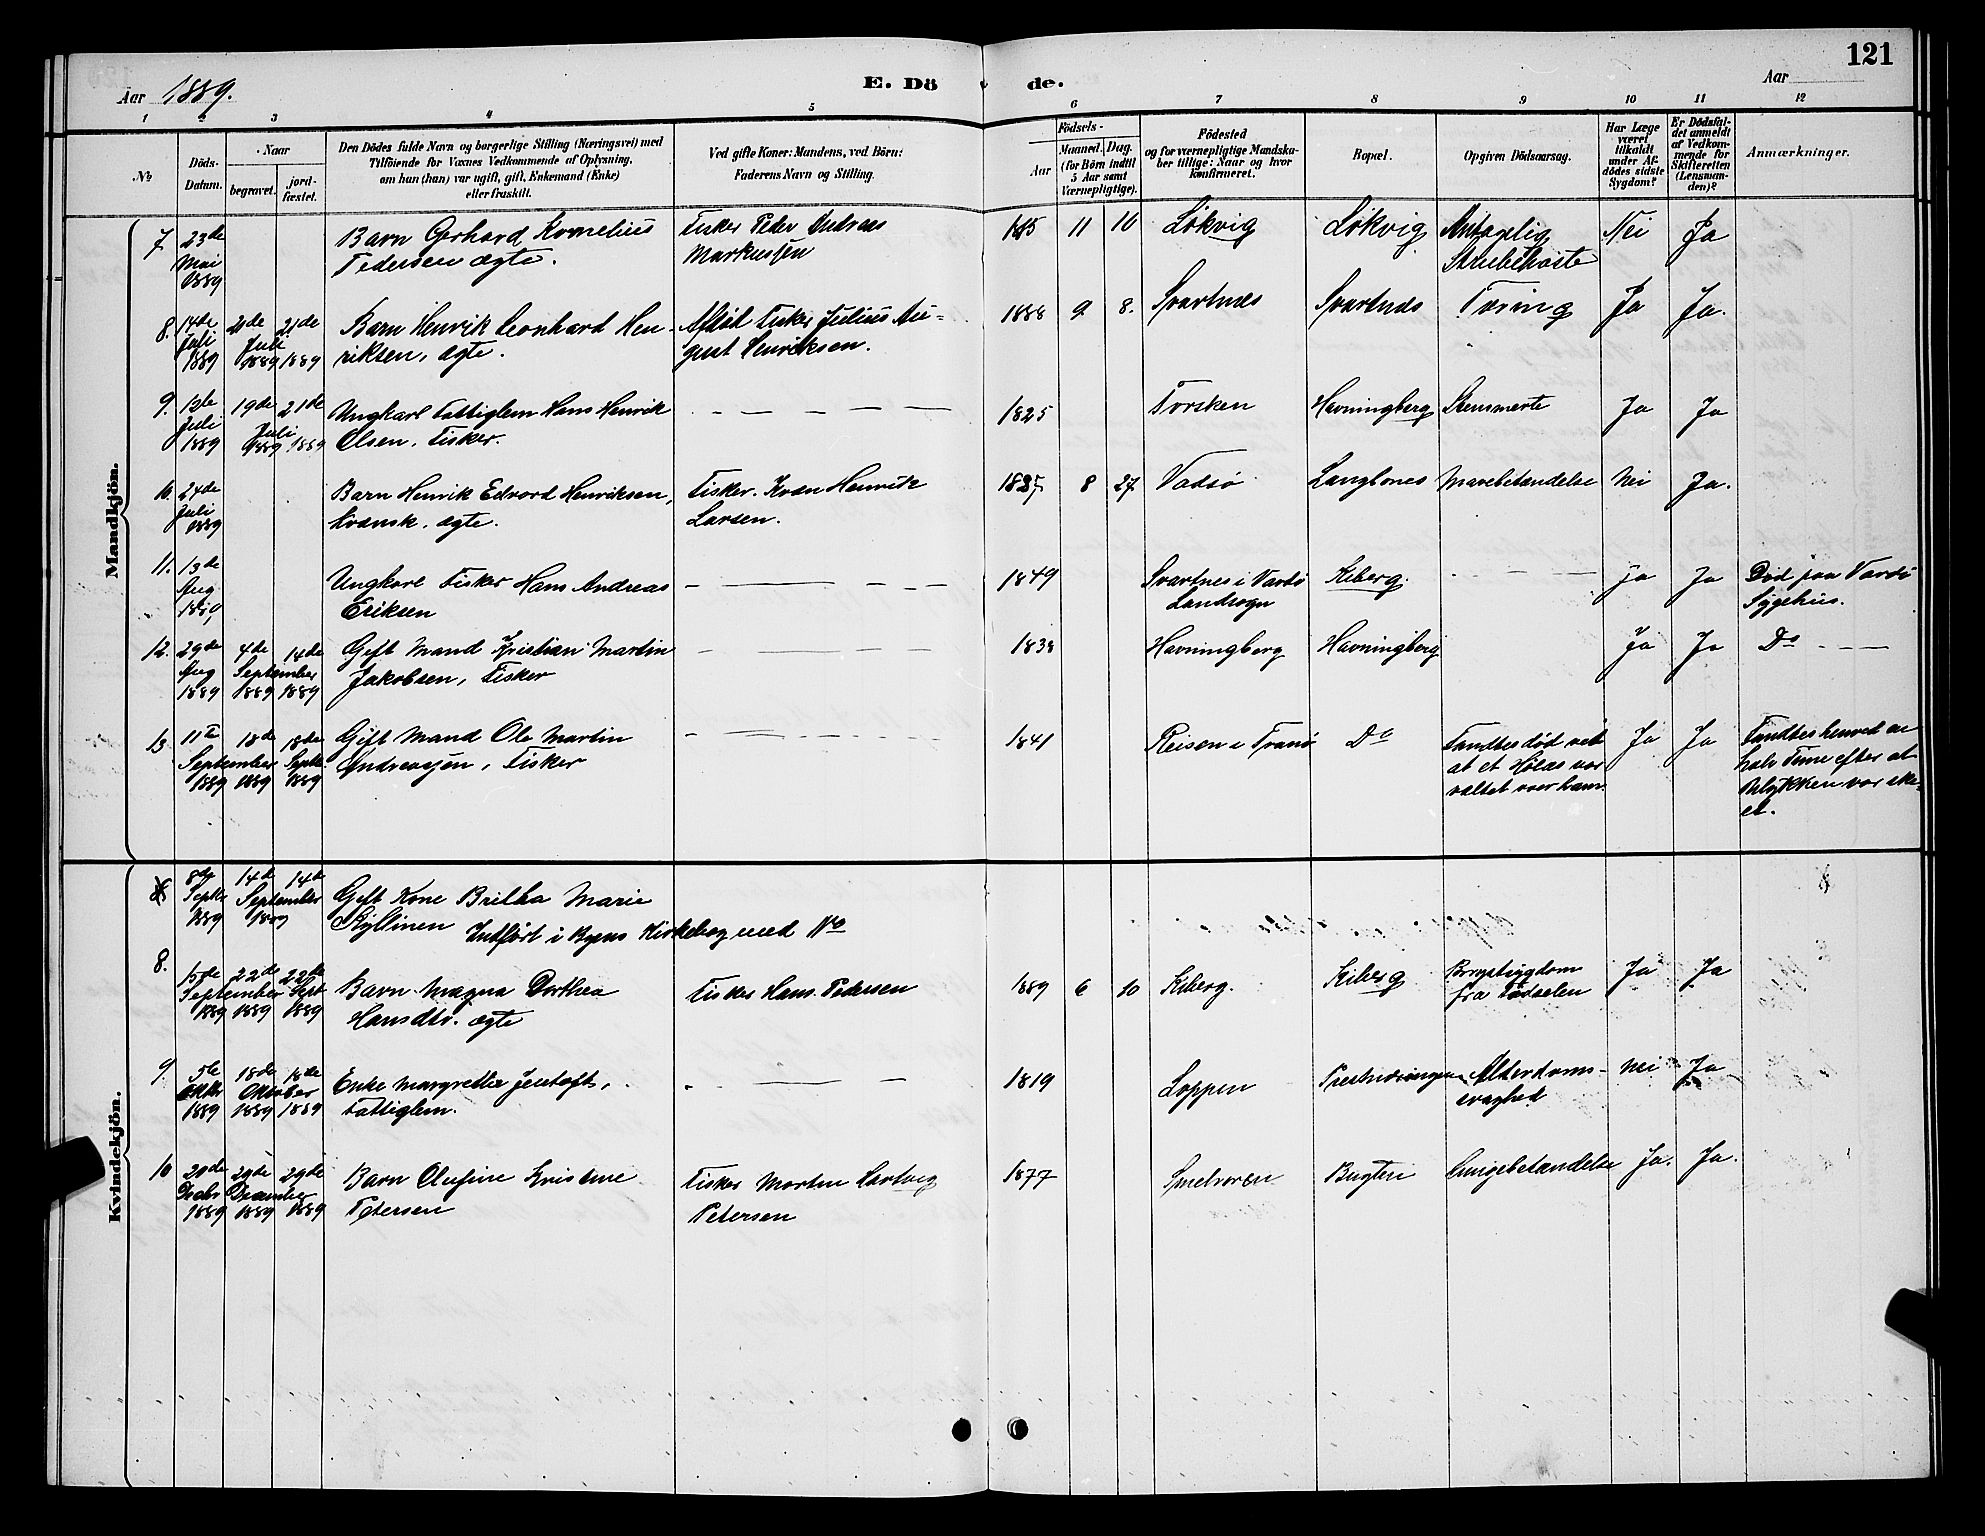 121
Aar 1889.
E. Dö de.
Aar
1 2 3 4 5 6 7 8 9 10 11 12
No
Döds-
Datum.
Naar
begravet.
jord-
fæstet.
Den Dödes fulde Navn og borgerlige Stilling (Næringsvei) med
Tilföiende for Voxnes Vedkommende af Oplysning,
om han (hun) var ugift, gift, Enkemand (Enke)
eller fraskilt.
Ved gifte Koner: Mandens, ved Börn:
Faderens Navn og Stilling.
Födsels-
Aar
Maaned. Dag.
(for Börn indtil
5 Aar samt
Værnepligtige).
Födested
og for værnepligtige Mandska-
ber tillige: Naar og hvor
konfirmeret.
Bopæl.
Opgiven Dödsaarsag.
Har Læge
været
tilkaldt
under Af-
dödes sidste
Sygdom?
Er Dödsfal-
det anmeldt
af Vedkom-
mende for
Skifteretten
(Lensman-
den)?
Anmærkninger.
Mandkjön.
7. 23de Mai 1889
Barn Gerhard Kornelius
Pedersen ægte.
Fisker Peder Andreas
Markussen
11 10 Løkvig Løkvig Antagelig
Strubehoste
Nei Ja
8. 14de Juli 1889 21de Juli 1889 21de 1889
Barn Henrik Leonhard Hen-
riksen, ægte.
Afdød Fisker Julius Au-
gust Henriksen.
1888 9 8. Svartnæs Svartnæs Tæring Ja Ja.
9. 12te Juli 1889 19de Juli 1889 21de 1889
Ungkarl Fattiglem Hans Henrik
Olsen, Fisker.
1825 Torsken Havningberg Ja Ja
10. 24de Juli 1889
Barn Henrik Edvard Henriksen,
kvænsk, ægte.
Fisker. Kvæn Henrik
Larsen.
8 27. Vadsø Langbones Mavebetændelse Nei Ja.
11. 13de Aug
Ungkarl Fisker Hans Andreas
Eriksen
1849 Svartnes i Vardø
Landsogn
Kiberg. Ja Ja Død paa Vardø
Sygehus.
12. 29de Aug 1889 4de September 1889 14de 1889
Gift Mand Kristian Martin
Jakobsen, Fisker
1838 Havningberg Havningberg Ja Ja Do
13. 11te September 1889 18de 1889 18de Septr 1889
Gift Mand Ole Martin
Andreassen, Fisker
1841 Reisen i Tranø Do Fandtes død ved
at et Hølæs var
væltet over ham.
Ja Ja Fandtes henved en
halv Time efter at
Ulykken var ske-
et.
Kvindekjön.
8de Septbr 1889 14de September 1889 14de
Gift Kone Britha Marie
Kyllinen Indført i Byens Kirkebog med No
8. 15de September 1889 22de 1889 22de Sept 1889
Barn Magna Dorthea
Hansdtr. ægte
Fisker Hans Pedersen
1889 6 10 Kiberg. Kiberg Brystsygdom
fra Fødselen
Ja Ja
9 5te Oktbr 1889 18de Oktober 1889 18de 1889
Enke Margrethe Jentoft,
Fattiglem.
1819 Loppen Alderdoms-
svaghed
Nei Ja
10 20de Decbr 1889 29de December 1889 29de 1889
Barn Olufine Kristine
Petersen
Fisker Morten Hartvig
Petersen
1877 Smelroren Bugten Lungebetændelse Ja. Ja.